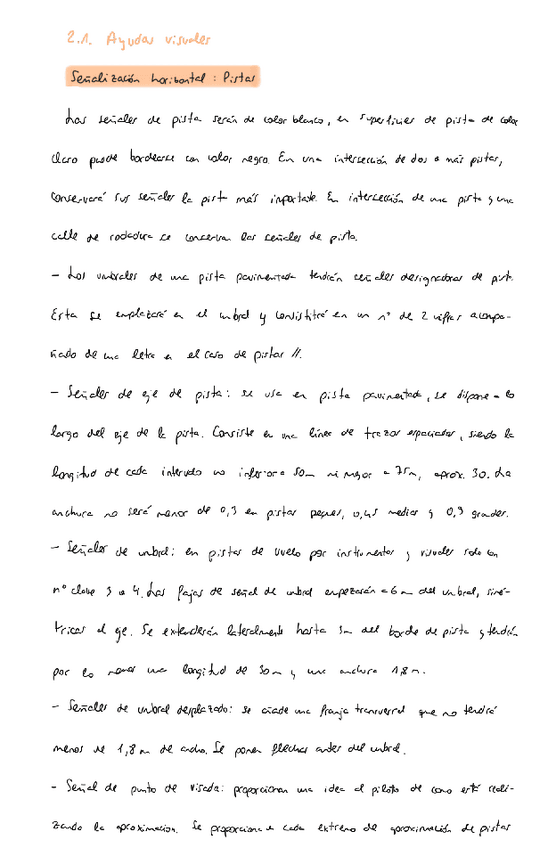 2.1. Ayudas visuales
Señalización horizontal : Pistas
Las señales de pista serán de color blanco, en superficies de pista de color
claro puede bordearse con color negro. En una intersección de dos o más pistas,
conservará sus señales la pista más importante. En intersección de una pista y una
calle de rodadura se conservan las señales de pista.
- Los umbrales de una pista pavimentada tendrán señales designadoras de pista.
Esta se emplazará en el umbral y consistirá en un nº de 2 cifras acompa-
ñado de una letra en el caso de pistas //.
- Señales de eje de pista: se usa en pista pavimentada, se dispone a lo
largo del eje de la pista. Consiste en una línea de trazos espaciados, siendo la
longitud de cada intervalo no inferior a 50m ni mayor a 75m, aprox. 30. La
anchura no será menor de 0,3 en pistas peques, 0,45 medias y 0,9 grandes.
- Señales de umbral: en pistas de vuelo por instrumentos y visuales solo con
nº clave 3 o 4. Las fajas de señal de umbral empezarán a 6m del umbral, simé-
tricas al eje. Se extenderán lateralmente hasta 3m del borde de pista y tendrán
por lo menos una longitud de 30m y una anchura 1,8m.
- Señales de umbral desplazado: se añade una franja transversal que no tendrá
menos de 1,8m de ancho. Se ponen flechas antes del umbral.
- Señal de punto de visada: proporcionan una idea al piloto de como está reali-
zando la aproximación. Se proporciona a cada extremo de aproximación de pistas